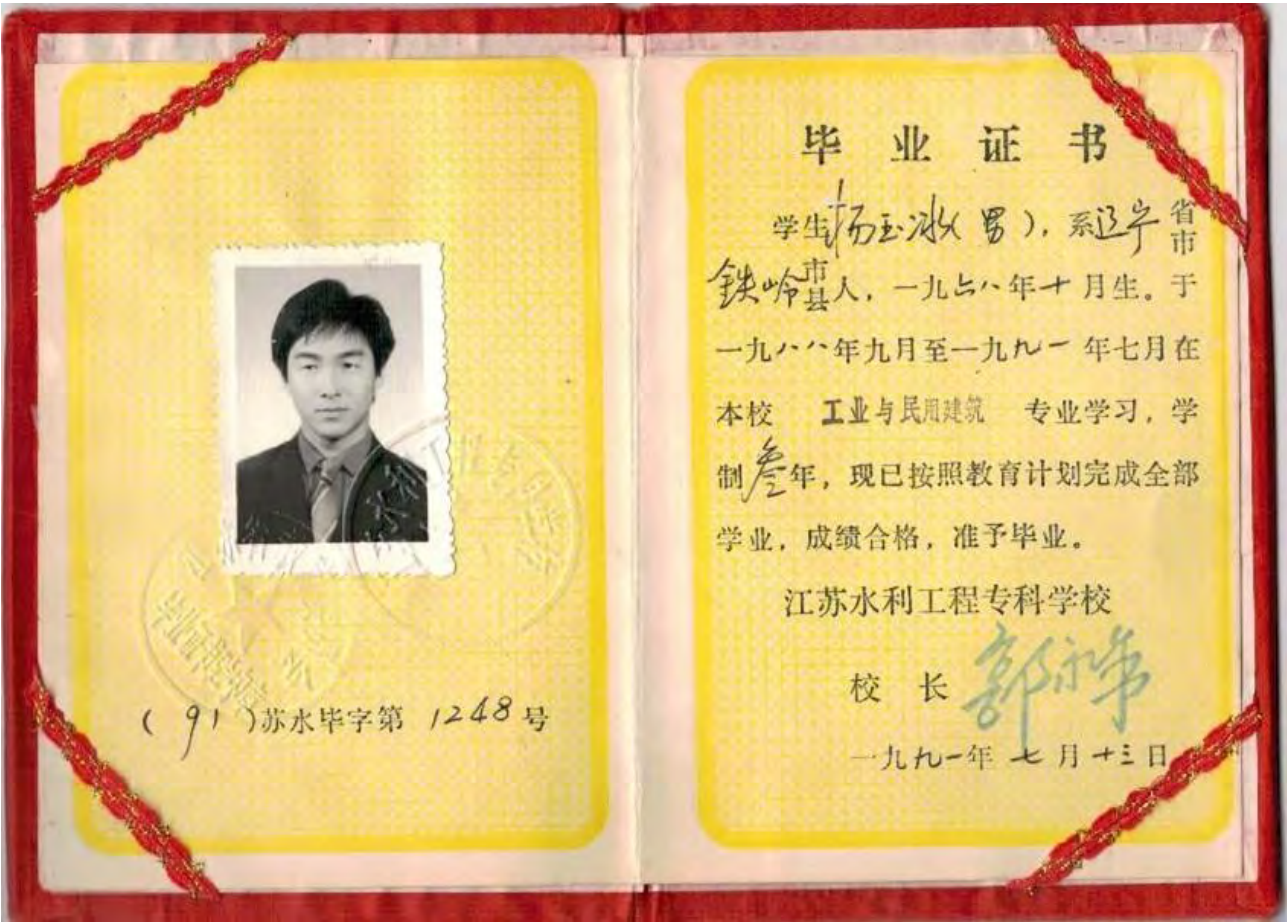 (91)苏水毕字第1248号
毕业证书
学生杨玉冰(男),系辽宁省市
铁岭市县人,一九六八年十月生。于
一九八八年九月至一九九一年七月在
本校 工业与民用建筑 专业学习,学
制叁年,现已按照教育计划完成全部
学业,成绩合格,准予毕业。
江苏水利工程专科学校
校长
一九九一年七月十三日